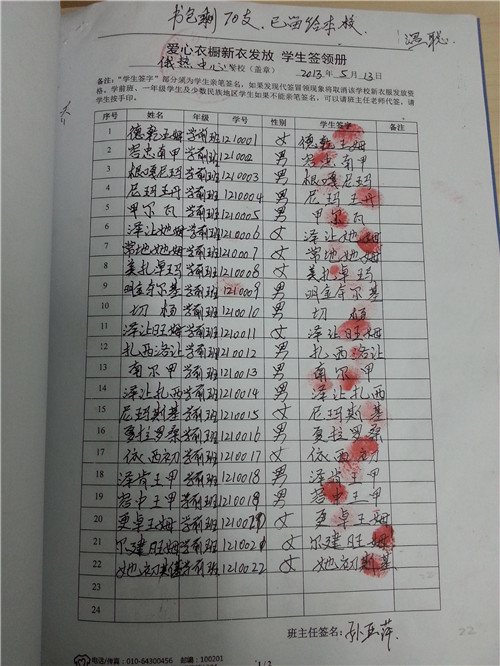 书包剩70支,已留给本校.
冯聪
爱心衣橱新衣发放 学生签领册
俄热中心学校(盖章) 2013年5月13日
备注:“学生签字”部分须为学生亲笔签名,如果发现代签冒领现象将取消该学校新衣服发放资
格。学前班、一年级学生及少数民族地区学生如果不能亲笔签名,可以请班主任老师代签,请
学生按手印。
序号 姓名 年级 学号 性别 学生签字 备注
1 德乾王姆 学前班 1210001 女 德乾王姆
2 若忠南甲 学前班 121002 男 若忠南甲
3 根嘎尼玛 学前班 1210003 男 根嘎尼玛
4 尼玛王丹 学前班 1210004 男 尼玛王丹
5 甲尔瓦 学前班 1210005 男 甲尔瓦
6 泽让她姆 学前班 1210006 女 泽让她姆
7 常她她姆 学前班 1210007 女 常她她姆
8 美扎卓玛 学前班 1210008 女 美扎卓玛
9 呷金夺尔基 学前班 1210009 男 呷金夺尔基
10 切恒 学前班 1210010 男 切恒
11 泽让旺姆 学前班 1210011 女 泽让旺姆
12 扎西洛让 学前班 1210012 男 扎西洛让
13 南尔甲 学前班 1210013 男 南尔甲
14 泽让扎西 学前班 1210014 男 泽让扎西
15 尼玛斯基 学前班 1210015 女 尼玛斯基
16 夏拉罗桑 学前班 1210016 男 夏拉罗桑
17 依西初 学前班 1210017 女 依西初
18 泽肯王甲 学前班 1210018 男 泽肯王甲
19 若中王甲 学前班 1210019 男 若中王甲
20 更卓王姆 学前班 女 更卓王姆
21 尔建旺姆 学前班 1210021 女 尔建旺姆
22 她初斯基 学前班 1210022 女 她初斯基
23
24
22
班主任签名:孙亚萍.
电话/传真:010-64300456 邮编:100201